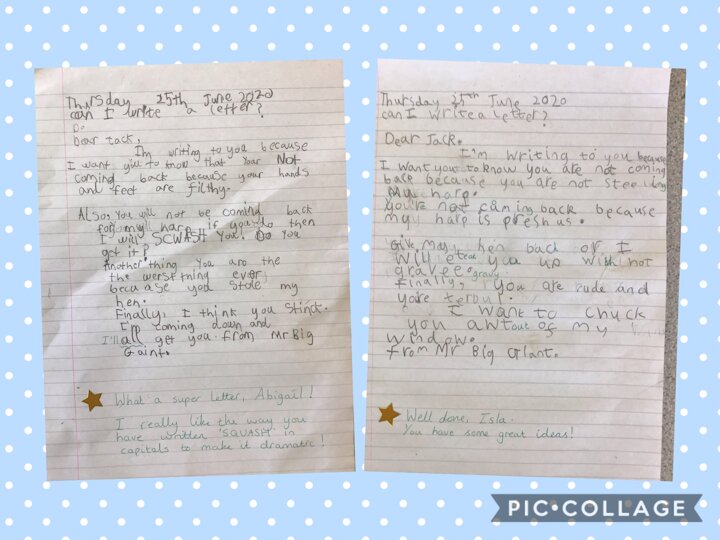 Thursday 25th June 2020
can I write a letter?
De
Dear Jack,
I'm writing to you because
I want you to know that Your Not
coming back because your hands
and feet are filthy.
Also, You will not be coming back
for my harp if you do then
I will SCWASH You. Do You
get it?
Another thing You are the
the werst thing ever,
because you stole my
hen.
Finally, I think you stinck.
I'm coming down and
I'll all get you. from Mr Big
Gaint.
What a super letter, Abigail!
I really like the way you
have written 'SQUASH' in
capitals to make it dramatic!
Thursday 25th June 2020
can I write a letter?
Dear Jack.
I'm writing to you because
I want you to know you are not coming
back because you are not steeling
my harp.
you're not coming back because
may harp is preshus.
Give may hen back or I
will eat you up with hot
gravee. gravy
Finally, you are rude and
you're terbul.
I want to chuck
you awt out of my
window.
from Mr Big Giant.
Well done, Isla.
You have some great ideas!
PIC•COLLAGE